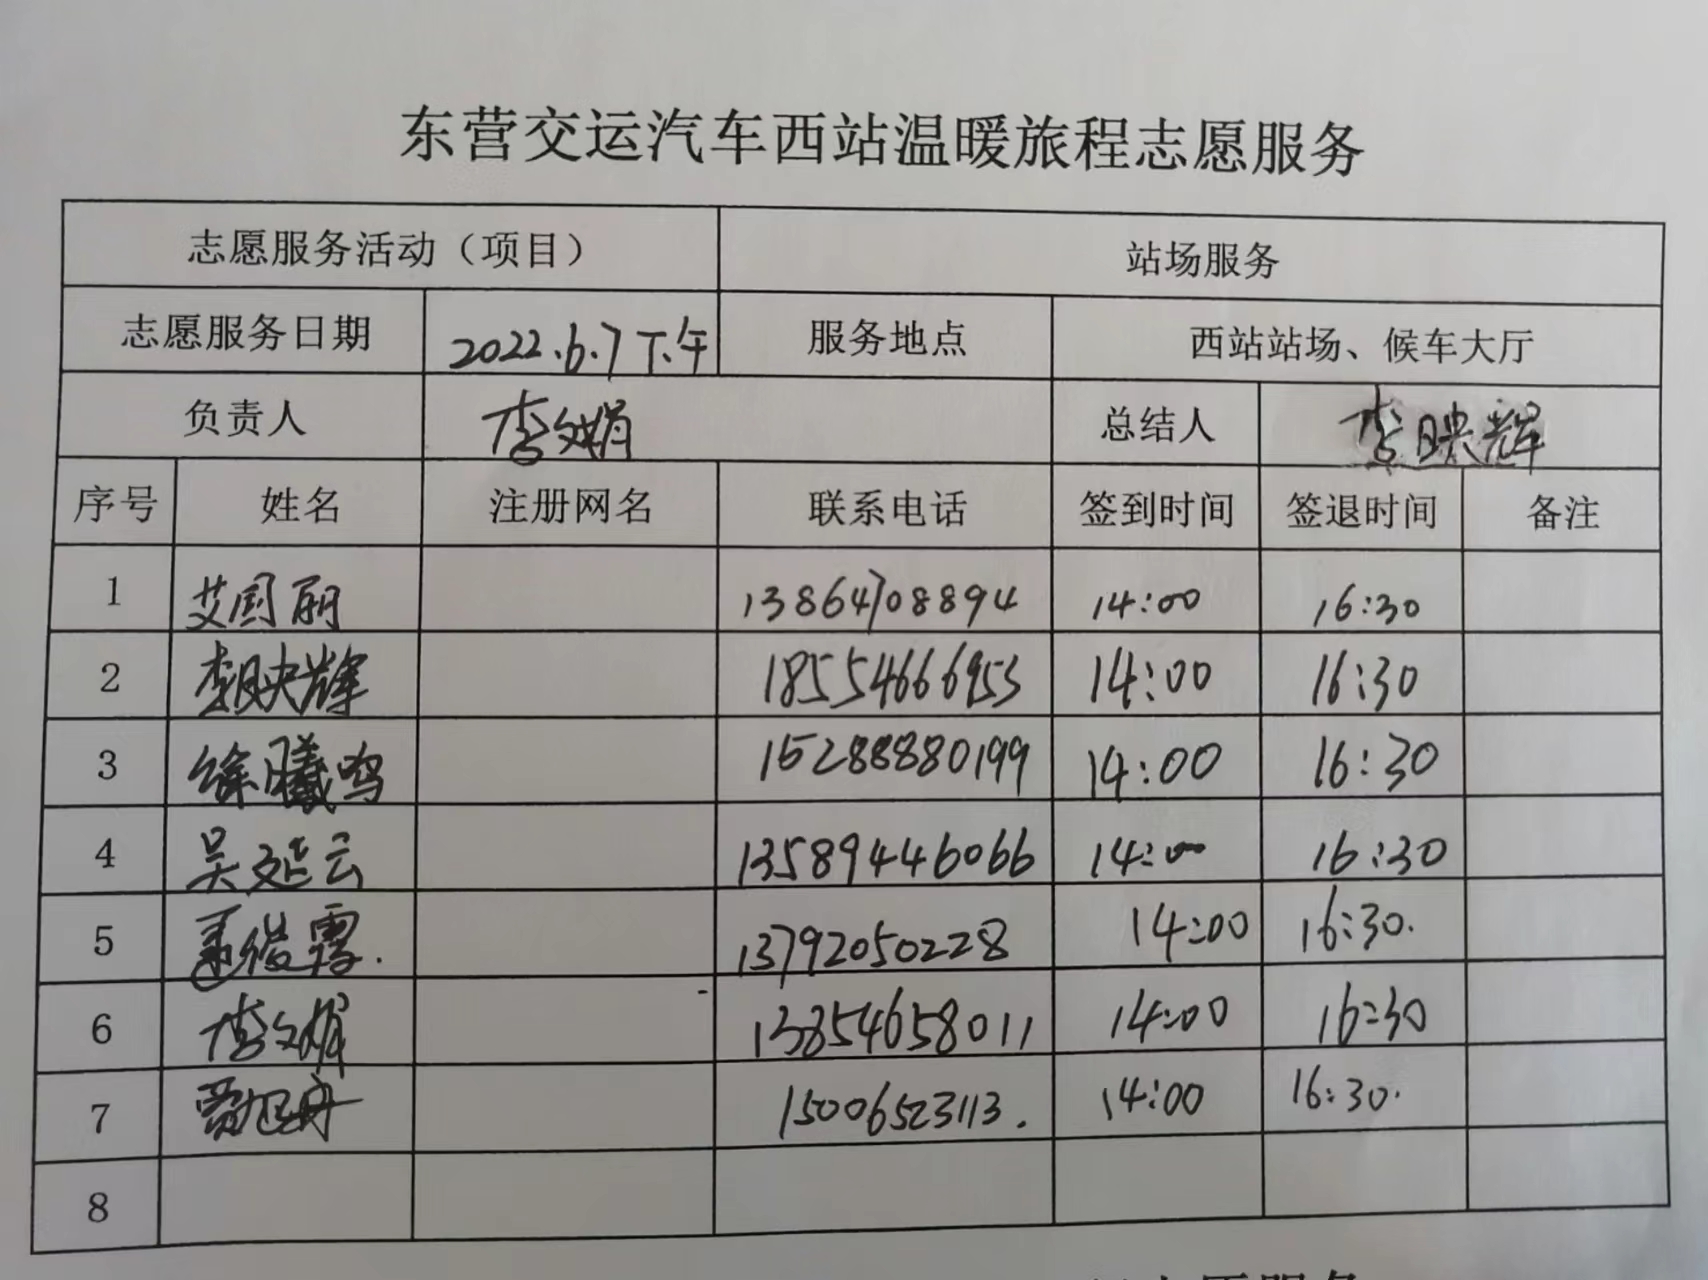 东营交运汽车西站温暖旅程志愿服务
志愿服务活动（项目） 站场服务
志愿服务日期 2022.6.7下午 服务地点 西站站场、候车大厅
负责人 李文娟 总结人 李映辉
序号 姓名 注册网名 联系电话 签到时间 签退时间 备注
1 艾国丽 13864708894 14:00 16:30
2 李映辉 18554666953 14:00 16:30
3 徐曦鸣 15288880199 14:00 16:30
4 吴延云 13589446066 14:00 16:30
5 13792050228 14:00 16:30.
6 李文娟 13854658011 14:00 16:30
7 贾旭丹 15006523113. 14:00 16:30.
8